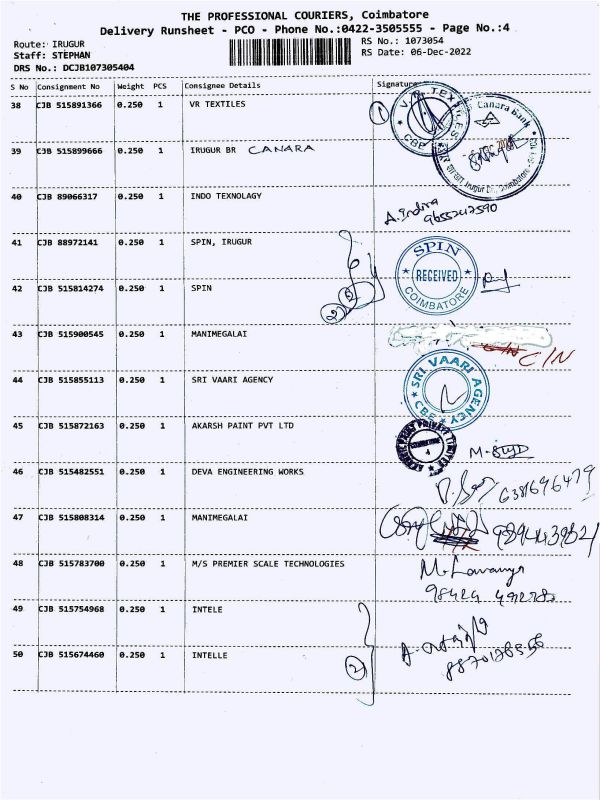 THE PROFESSIONAL COURIERS, Coimbatore
Delivery Runsheet - PCO - Phone No.:0422-3505555 - Page No.:4
Route: IRUGUR
RS No.: 1073054
Staff: STEPHAN
RS Date: 06-Dec-2022
DRS No.: DCJB107305404
S No Consignment No Weight PCS Consignee Details Signature
38 CJB 515891366 0.250 1 VR TEXTILES
V.R. TEXTILES CBE
Canara Bank
39 CJB 515899666 0.250 1 IRUGUR BR CANARA
40 CJB 89066317 0.250 1 INDO TEXNOLAGY
A. Indira
9655247590
41 CJB 88972141 0.250 1 SPIN, IRUGUR
SPIN RECEIVED COIMBATORE
42 CJB 515814274 0.250 1 SPIN
2
43 CJB 515900545 0.250 1 MANIMEGALAI
C/N
44 CJB 515855113 0.250 1 SRI VAARI AGENCY
SRI VAARI AGENCY CBE
45 CJB 515872163 0.250 1 AKARSH PAINT PVT LTD
46 CJB 515482551 0.250 1 DEVA ENGINEERING WORKS
6381696479
47 CJB 515808314 0.250 1 MANIMEGALAI
48 CJB 515783700 0.250 1 M/S PREMIER SCALE TECHNOLOGIES
M. Lavanya
49 CJB 515754968 0.250 1 INTELE
50 CJB 515674460 0.250 1 INTELLE
2